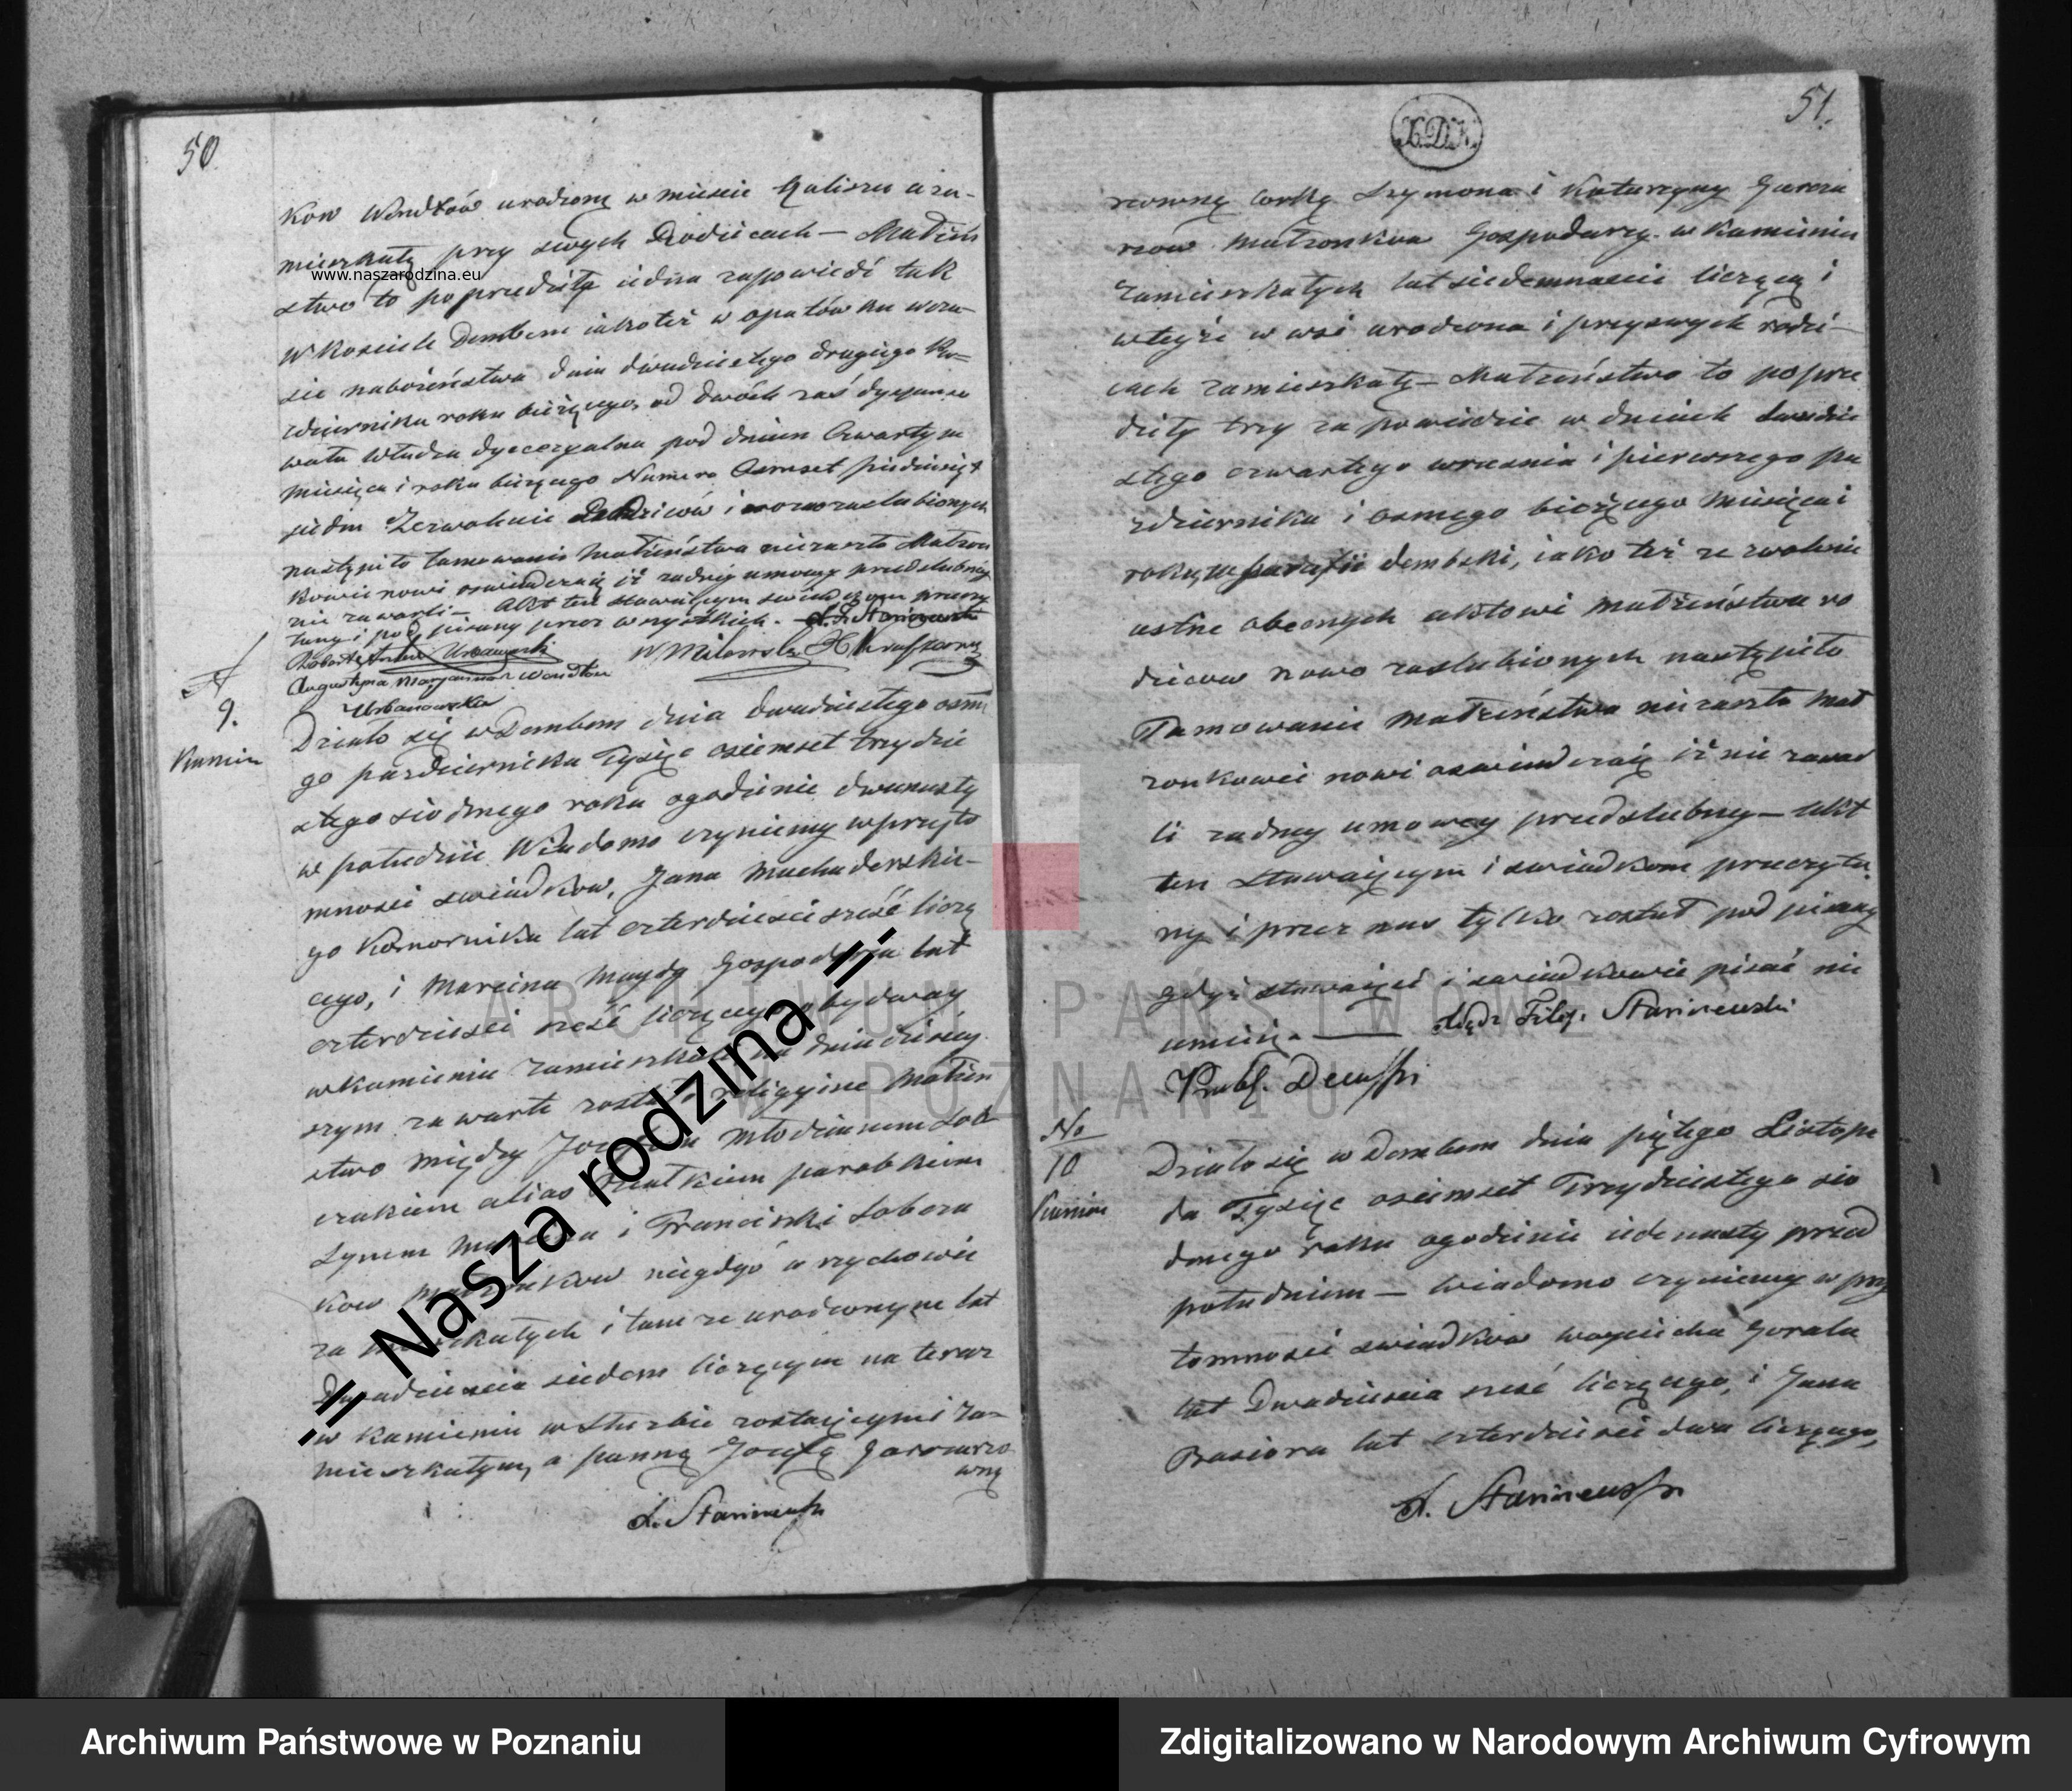 50
kow Wendtów urodzoną w mieście Kaliszu a za-
mieszkałą przy swych Rodzicach — Małżeń
www.naszarodzina.eu
stwo to poprzedziła iedna zapowiedź tak
w Kościele Dembem iako też w opatówku w cza-
sie nabożeństwa dnia dwudziestego drugiego Pa-
zdziernika roku bieżącego, od dwóch zaś dyspenso
wała Władza dyecezyalna pod dniem Czwartym
miesiąca i roku bieżącego Numero Osmset piedziesiąt
siedm Zezwolenie i nowozaslubionych
nastąpiło tamowanie małżeństwa niezaszło Małżon
kowie nowi oswiadczaią iż żadnéj umowy przedslubnéj
nie zawarli — Akt ten stawaiącym swiadkom przeczy
tany i pod pisany przez wszystkich. —
Augustyna Maryanna Wendtow
Urbanowska
N
9.
Kamień
Działo się w Dembem dnia dwudziestego osme
go pazdziernika Tysiąc osiemset trzydzie
stego siodmego roku ogodzinie dwunasty
w południe Wiadomo czyniemy wprzyto
mności swiadków, Jana Muchaderskie-
go Komornika lat czterdziesci sześć liczą
cego, i Marcina Maydy Gospodarza lat
czterdziesci sześć liczącego obydway
w Kamieniu zamieszkali na dniu dzisiey
szym zawarte zostało religyine Małżeń
stwo między Jozefem Młodzianem Sob
czakiem alias Bratkiem parobkiem
Synem i Franciszki Sobcza
kow Małżonkow niegdyś w rychowie
za mieszkałych i tamże urodzonym lat
Dwadziescia siedem liczącym na teraz
w Kamieniu w Służbie zostaiącym i za-
mieszkałym, a panną Jozefą Garncarzo
wną
=- Nasza rodzina -=
51.
K.D.K.
rzowną Corką Szymona i Katarzyny Garnca
rzów Małżonkow Gospodarzy w Kamieniu
Zamieszkałych lat siedemnascie liczącą i
wteyże w wsi urodzona i przyswych rodzi-
cach zamieszkałą — Małżeństwo to poprze
dziły trzy zapowiedzie w dniach dwudzie
stego czwartego wrzesnia i pierwszego pa
zdziernika i osmego bieżącego Miesiąca i
roku, w parafii dembski, iako też ze zwolenie
ustne obecnych aktowi Małżeństwa ro
dziców nowo zaslubionych nastąpiło
Tamowanie Małżeństwa niezaszło Mał
żonkowie nowi oswiadczaią iż nie zawar
li żadney umowey przedslubney — Akt
ten Stawaiącym i swiadkom przeczyta.
ny i przez nas tylko został pod pisany
gdyż stawaiący i swiadkowie pisać nie
umieią. — Xiądz Filip. Staniszewski
Prob. Dembski
No
10
Kamień
Działo się w Dembem dnia piątego Listopa
da Tysiąc osiemset Trzydziestego sio
dmego roku ogodzinie iedenasty przed
południem — wiadomo czyniemy w przy
tomnosci swiadkow woyciecha Gorala
lat Dwadziescia sześć liczącego, i Jana
Basiora lat czterdziesci dwa liczącego,
ARCHIWUM PAŃSTWOWE
W POZNANIU
Archiwum Państwowe w Poznaniu
Zdigitalizowano w Narodowym Archiwum Cyfrowym